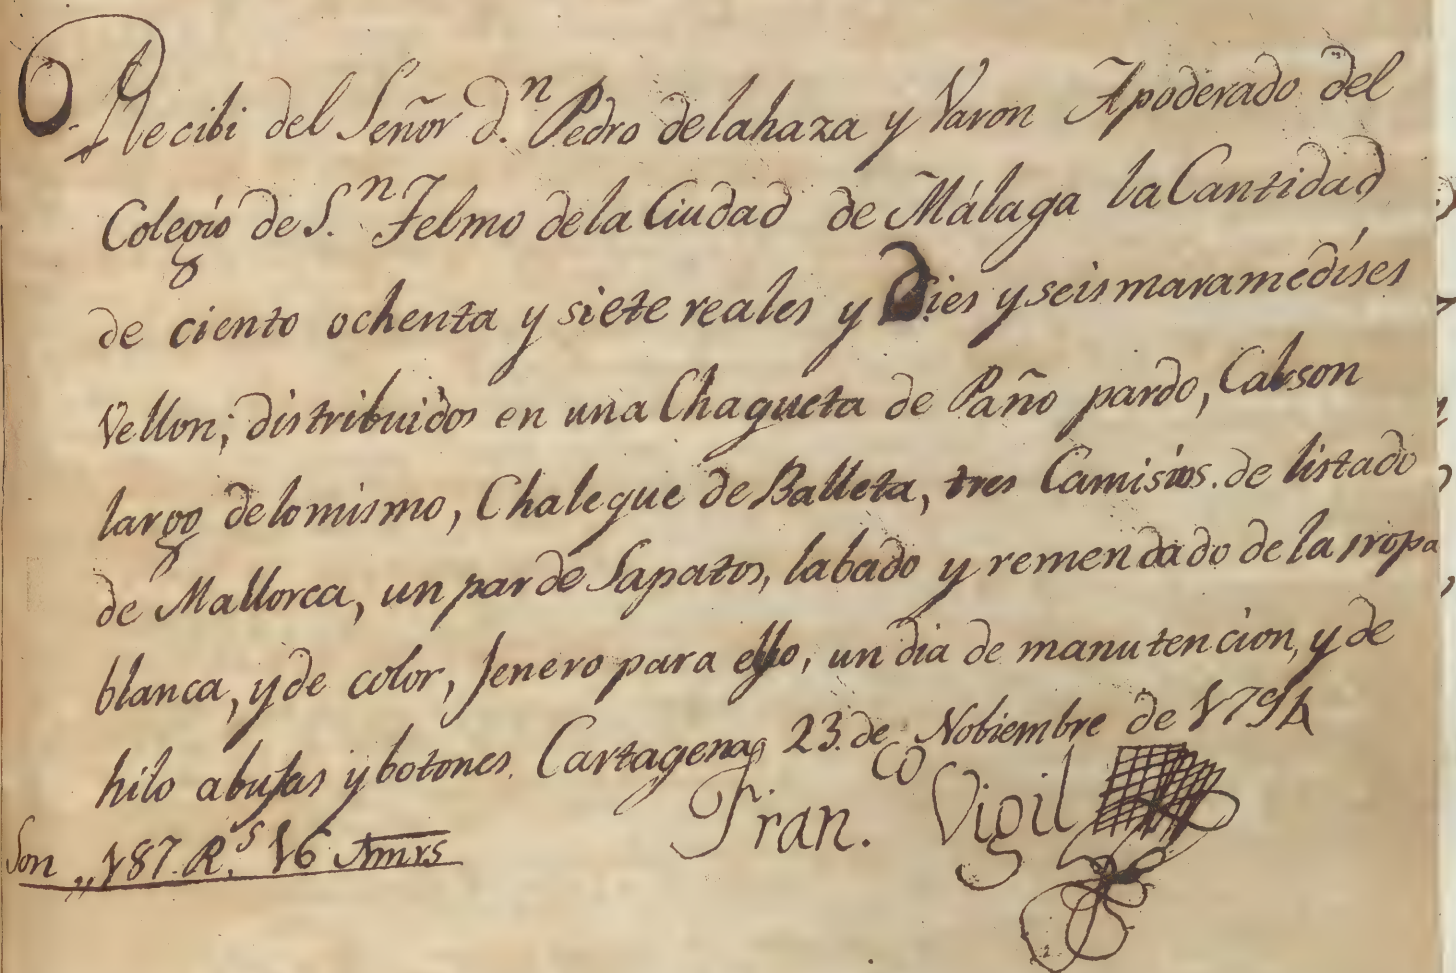 Recibi del Señor d.n Pedro delahaza y Varon Apoderado del
Colegio de S.n Telmo dela Ciudad de Málaga la Cantidad
de ciento ochenta y siete reales y Dies y seis maramedíses
Vellon; distribuidos en una Chaqueta de Paño pardo, Calson
largo delo mismo, Chaleque de Balleta, tres Camisios. de listado
de Mallorca, un par de Sapatos, labado y remendado de la rropa
blanca, y de color, Jenero para ello, un dia de manutencion, y de
hilo abujas y botones. Cartagena 23. de Nobiembre de 1794
Fran.co Vigil
Son ,, 187. R.s 16 mrs